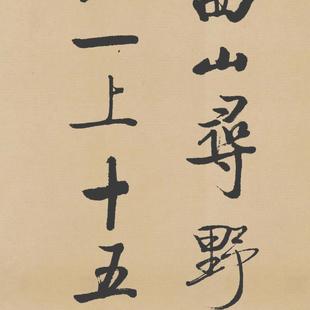 山尋野
一上十五